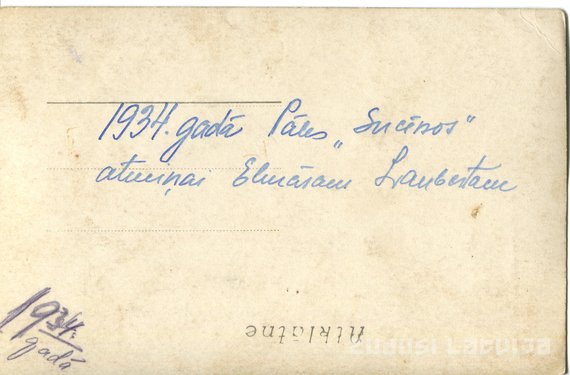 1934. gadā Pāles „Sucēnos"
atmiņai Elmāram Lambertam
1934.
gadā
Atklātne
ZUDUSĪ LATVIJA